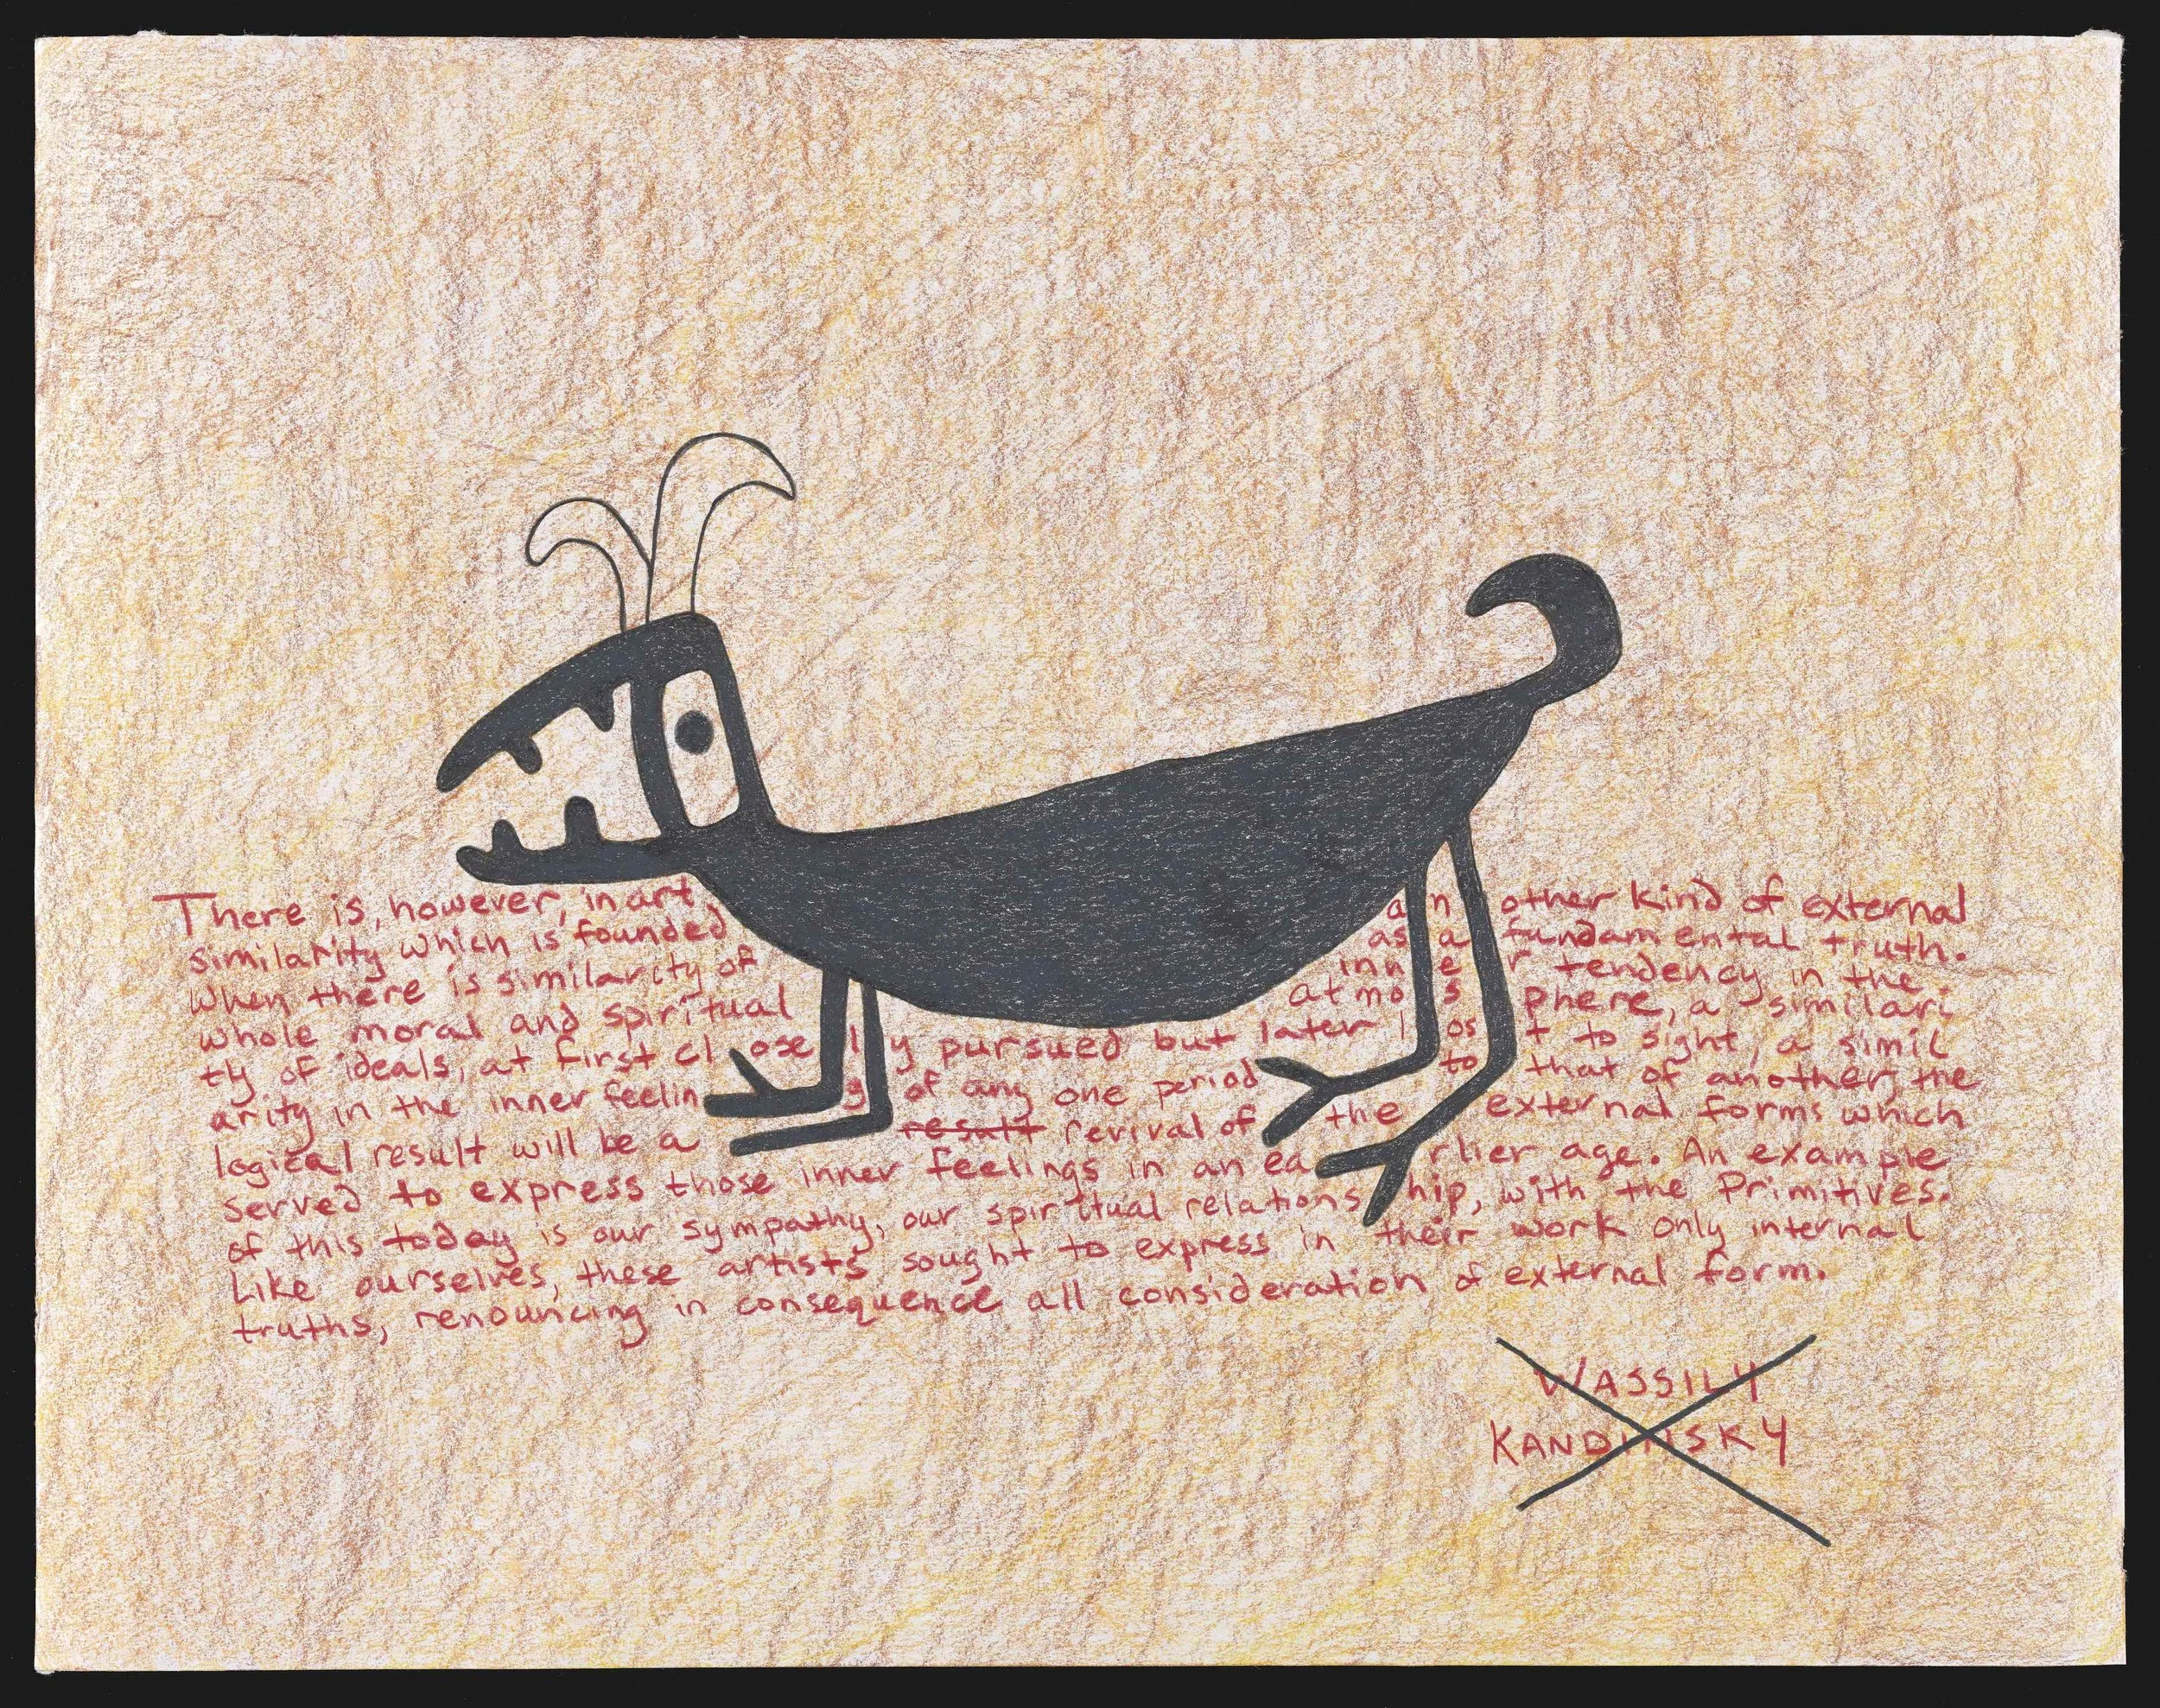 There is, however, in art, another kind of external
similarity which is founded as a fundamental truth.
When there is similarity of inner tendency in the
whole moral and spiritual atmosphere, a similari
ty of ideals, at first closely pursued but later lost to sight, a simil
arity in the inner feeling of any one period to that of another, the
logical result will be a result revival of the external forms which
served to express those inner feelings in an earlier age. An example
of this today is our sympathy, our spiritual relationship, with the Primitives.
Like ourselves, these artists sought to express in their work only internal
truths, renouncing in consequence all consideration of external form.
WASSILY
KANDINSKY